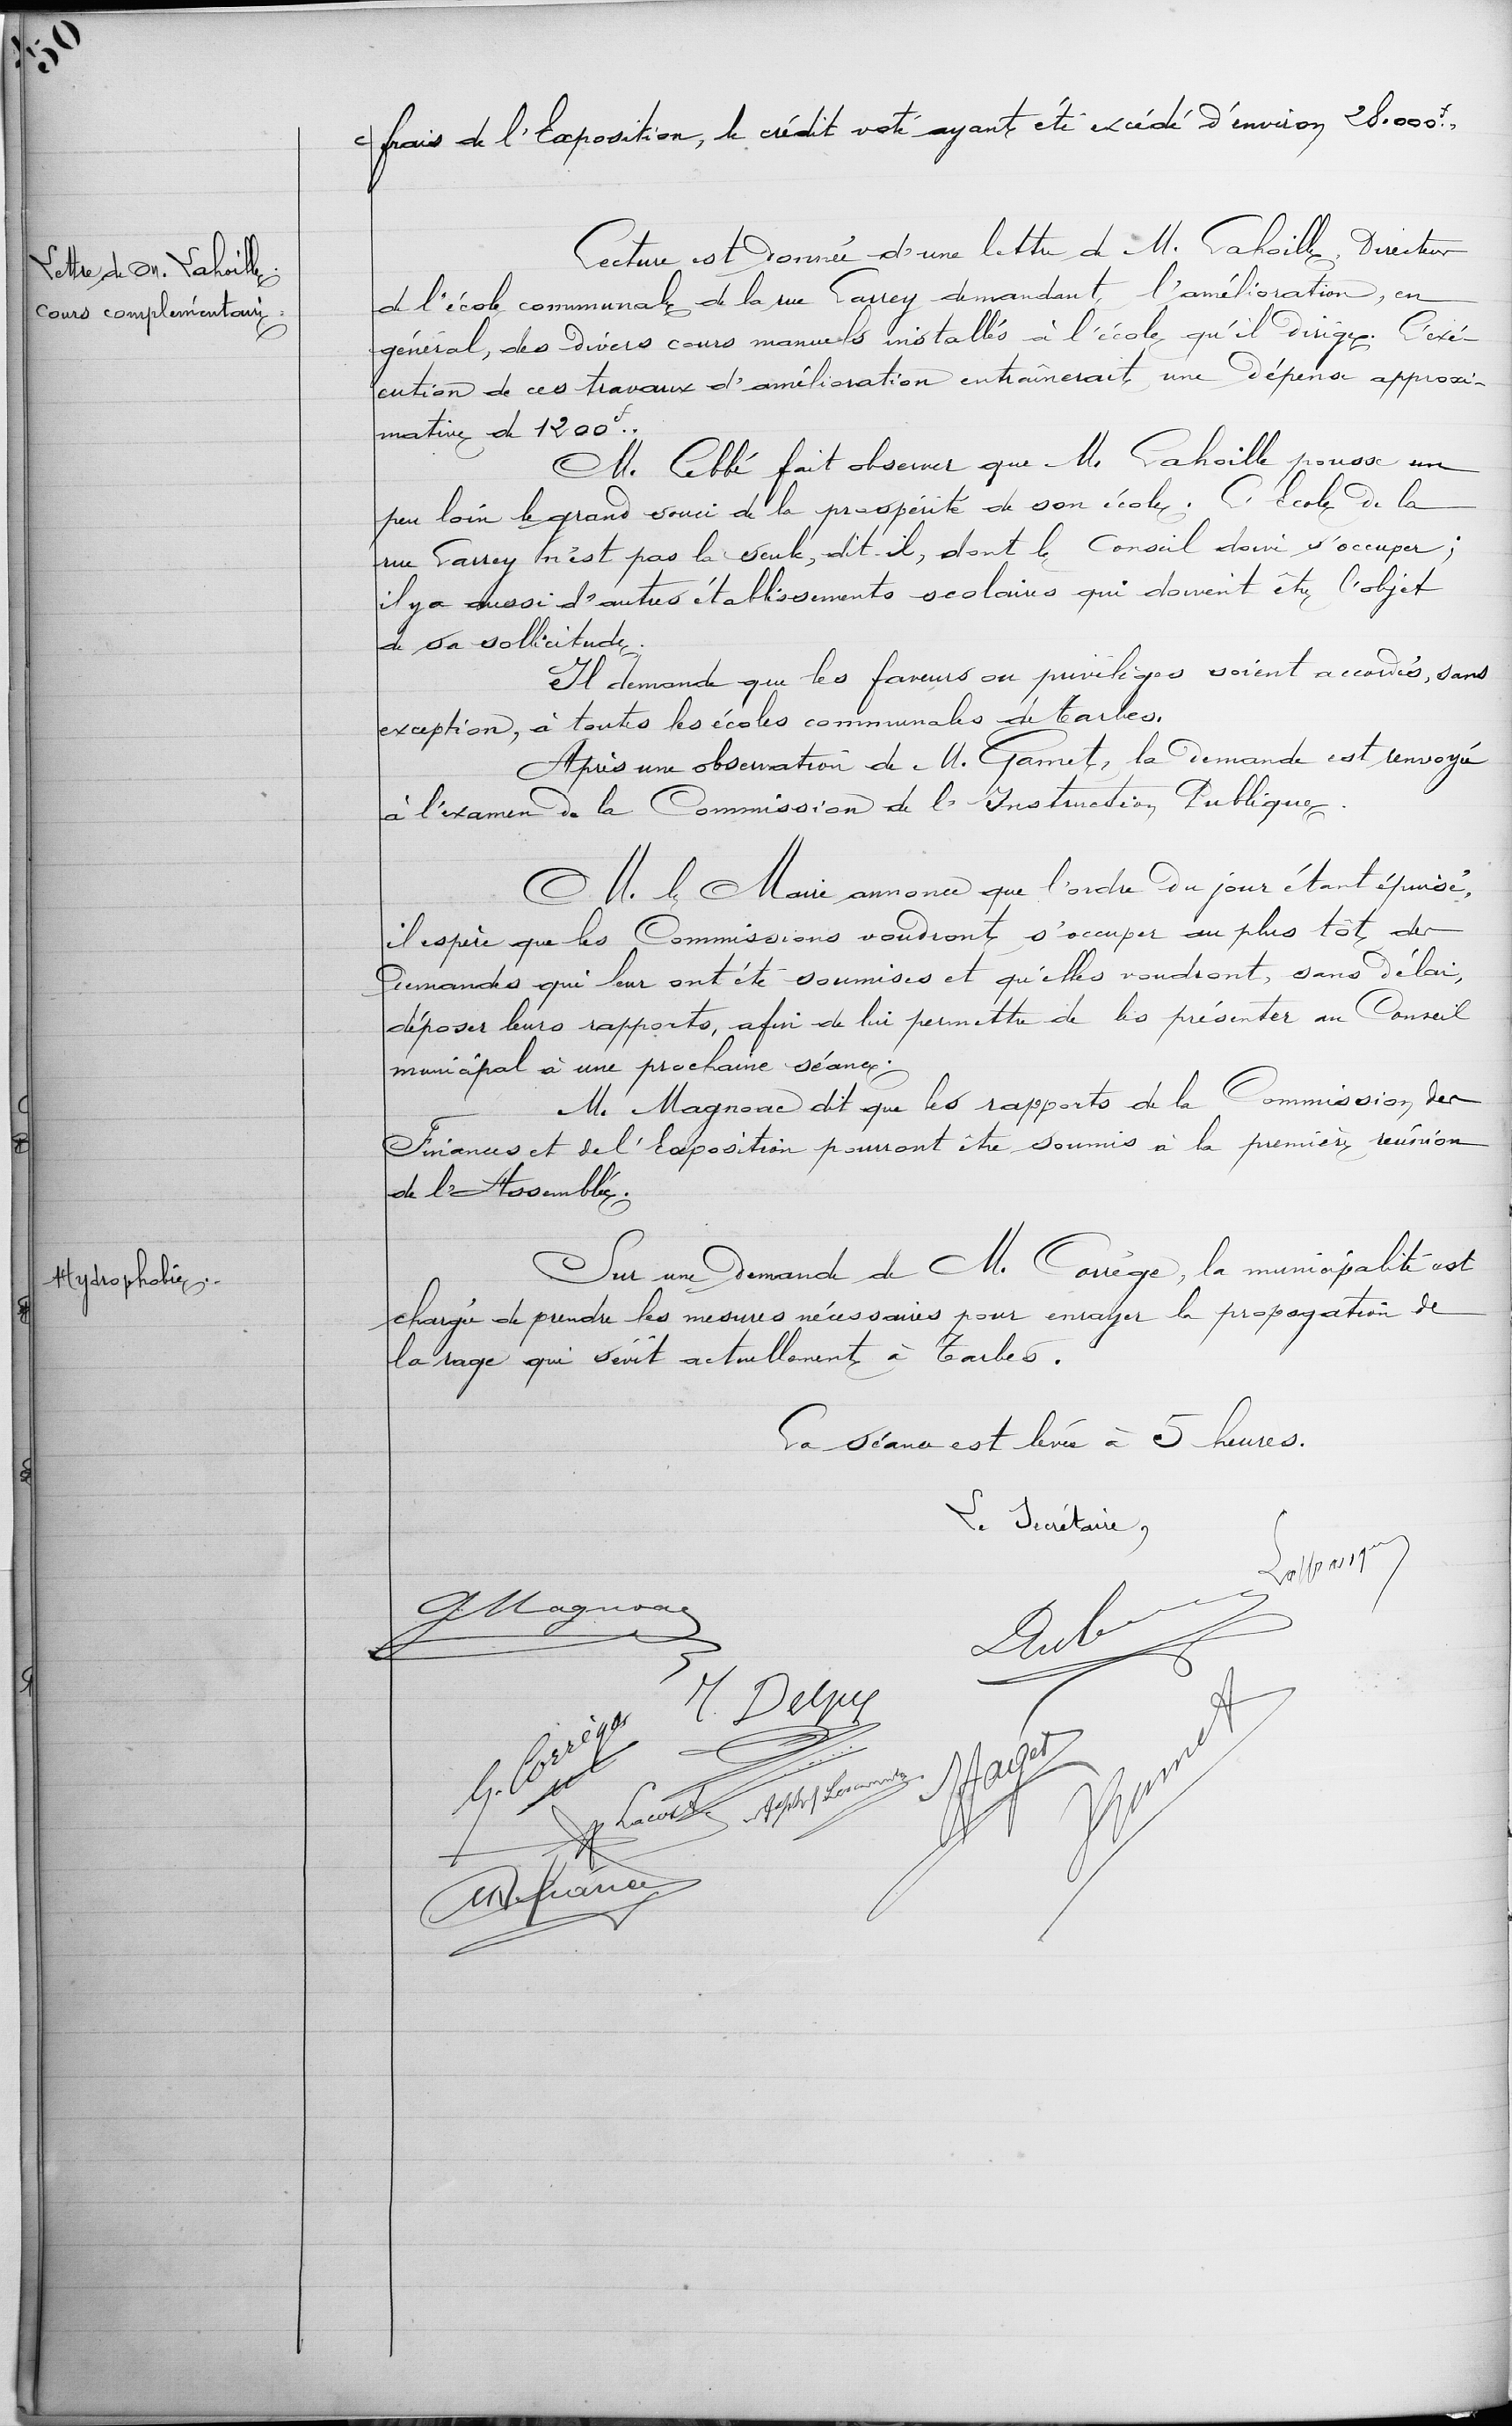 150
frais de l'Exposition, le crédit voté ayant été excédé d'environ 28.000f.
Lettre de M. Lahoille.
cours complémentaire.
Lecture est donnée d'une lettre de M. Lahoille, Directeur
de l'école communale de la rue Larrey demandant, l'amélioration, en
général, des divers cours manuels installés à l'école qu'il dirige. L'exé-
cution de ces travaux d'amélioration entraînerait une dépense approxi-
mative de 1200f..
M. Cebbé fait observer que M. Lahoille pousse un
peu loin le grand souci de la prospérité de son école. L'Ecole de la
rue Larrey n'est pas la seule, dit-il, dont le Conseil doive s'occuper;
il y a aussi d'autres établissements scolaires qui doivent être l'objet
de sa sollicitude.
Il demande que les faveurs ou privilèges soient accordés, sans
exception, à toutes les écoles communales de Tarbes.
Après une observation de M. Garnet, la demande est renvoyée
à l'examen de la Commission de l'Instruction Publique.
M. le Maire annonce que l'ordre du jour étant épuisé,
il espère que les Commissions voudront s'occuper au plus tôt des
demandes qui leur ont été soumises et qu'elles voudront, sans délai,
déposer leurs rapports, afin de lui permettre de les présenter au Conseil
municipal à une prochaine séance.
M. Magnoac dit que les rapports de la Commission des
Finances et de l'Exposition pourront être soumis à la première réunion
de l'Assemblée.
Hydrophobie..
Sur une demande de M. Corrège, la municipalité est
chargée de prendre les mesures nécessaires pour enrayer la propagation de
la rage qui sévit actuellement à Tarbes.
La séance est levée à 5 heures.
Le Secrétaire,
G. Magnoac
M. Delpuy
G. Corrège
Lacoste